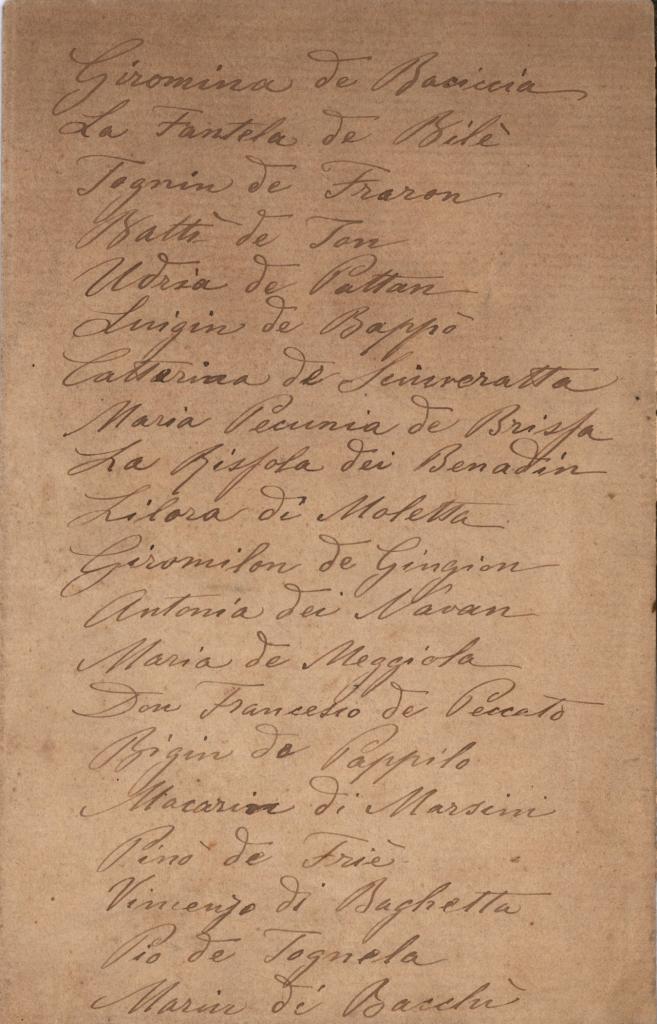 Giromina de Baciccia
La Fantela de Bilè
Tognin de Fraron
Batti de Ton
Udria de Pattan
Luigin de Bappò
Catterina de Sciuveratta
Maria Pecunia de Brissa
La Rissola dei Benadin
Lilora di Moletta
Giromilon de Gingion
Antonia dei Navan
Maria de Meggiola
Don Francesco de Peccato
Bigin de Pappilo
Macarin di Marsini
Pinò de Friè
Vincenzo di Baghetta
Pio de Tognela
Marin di Bacchì